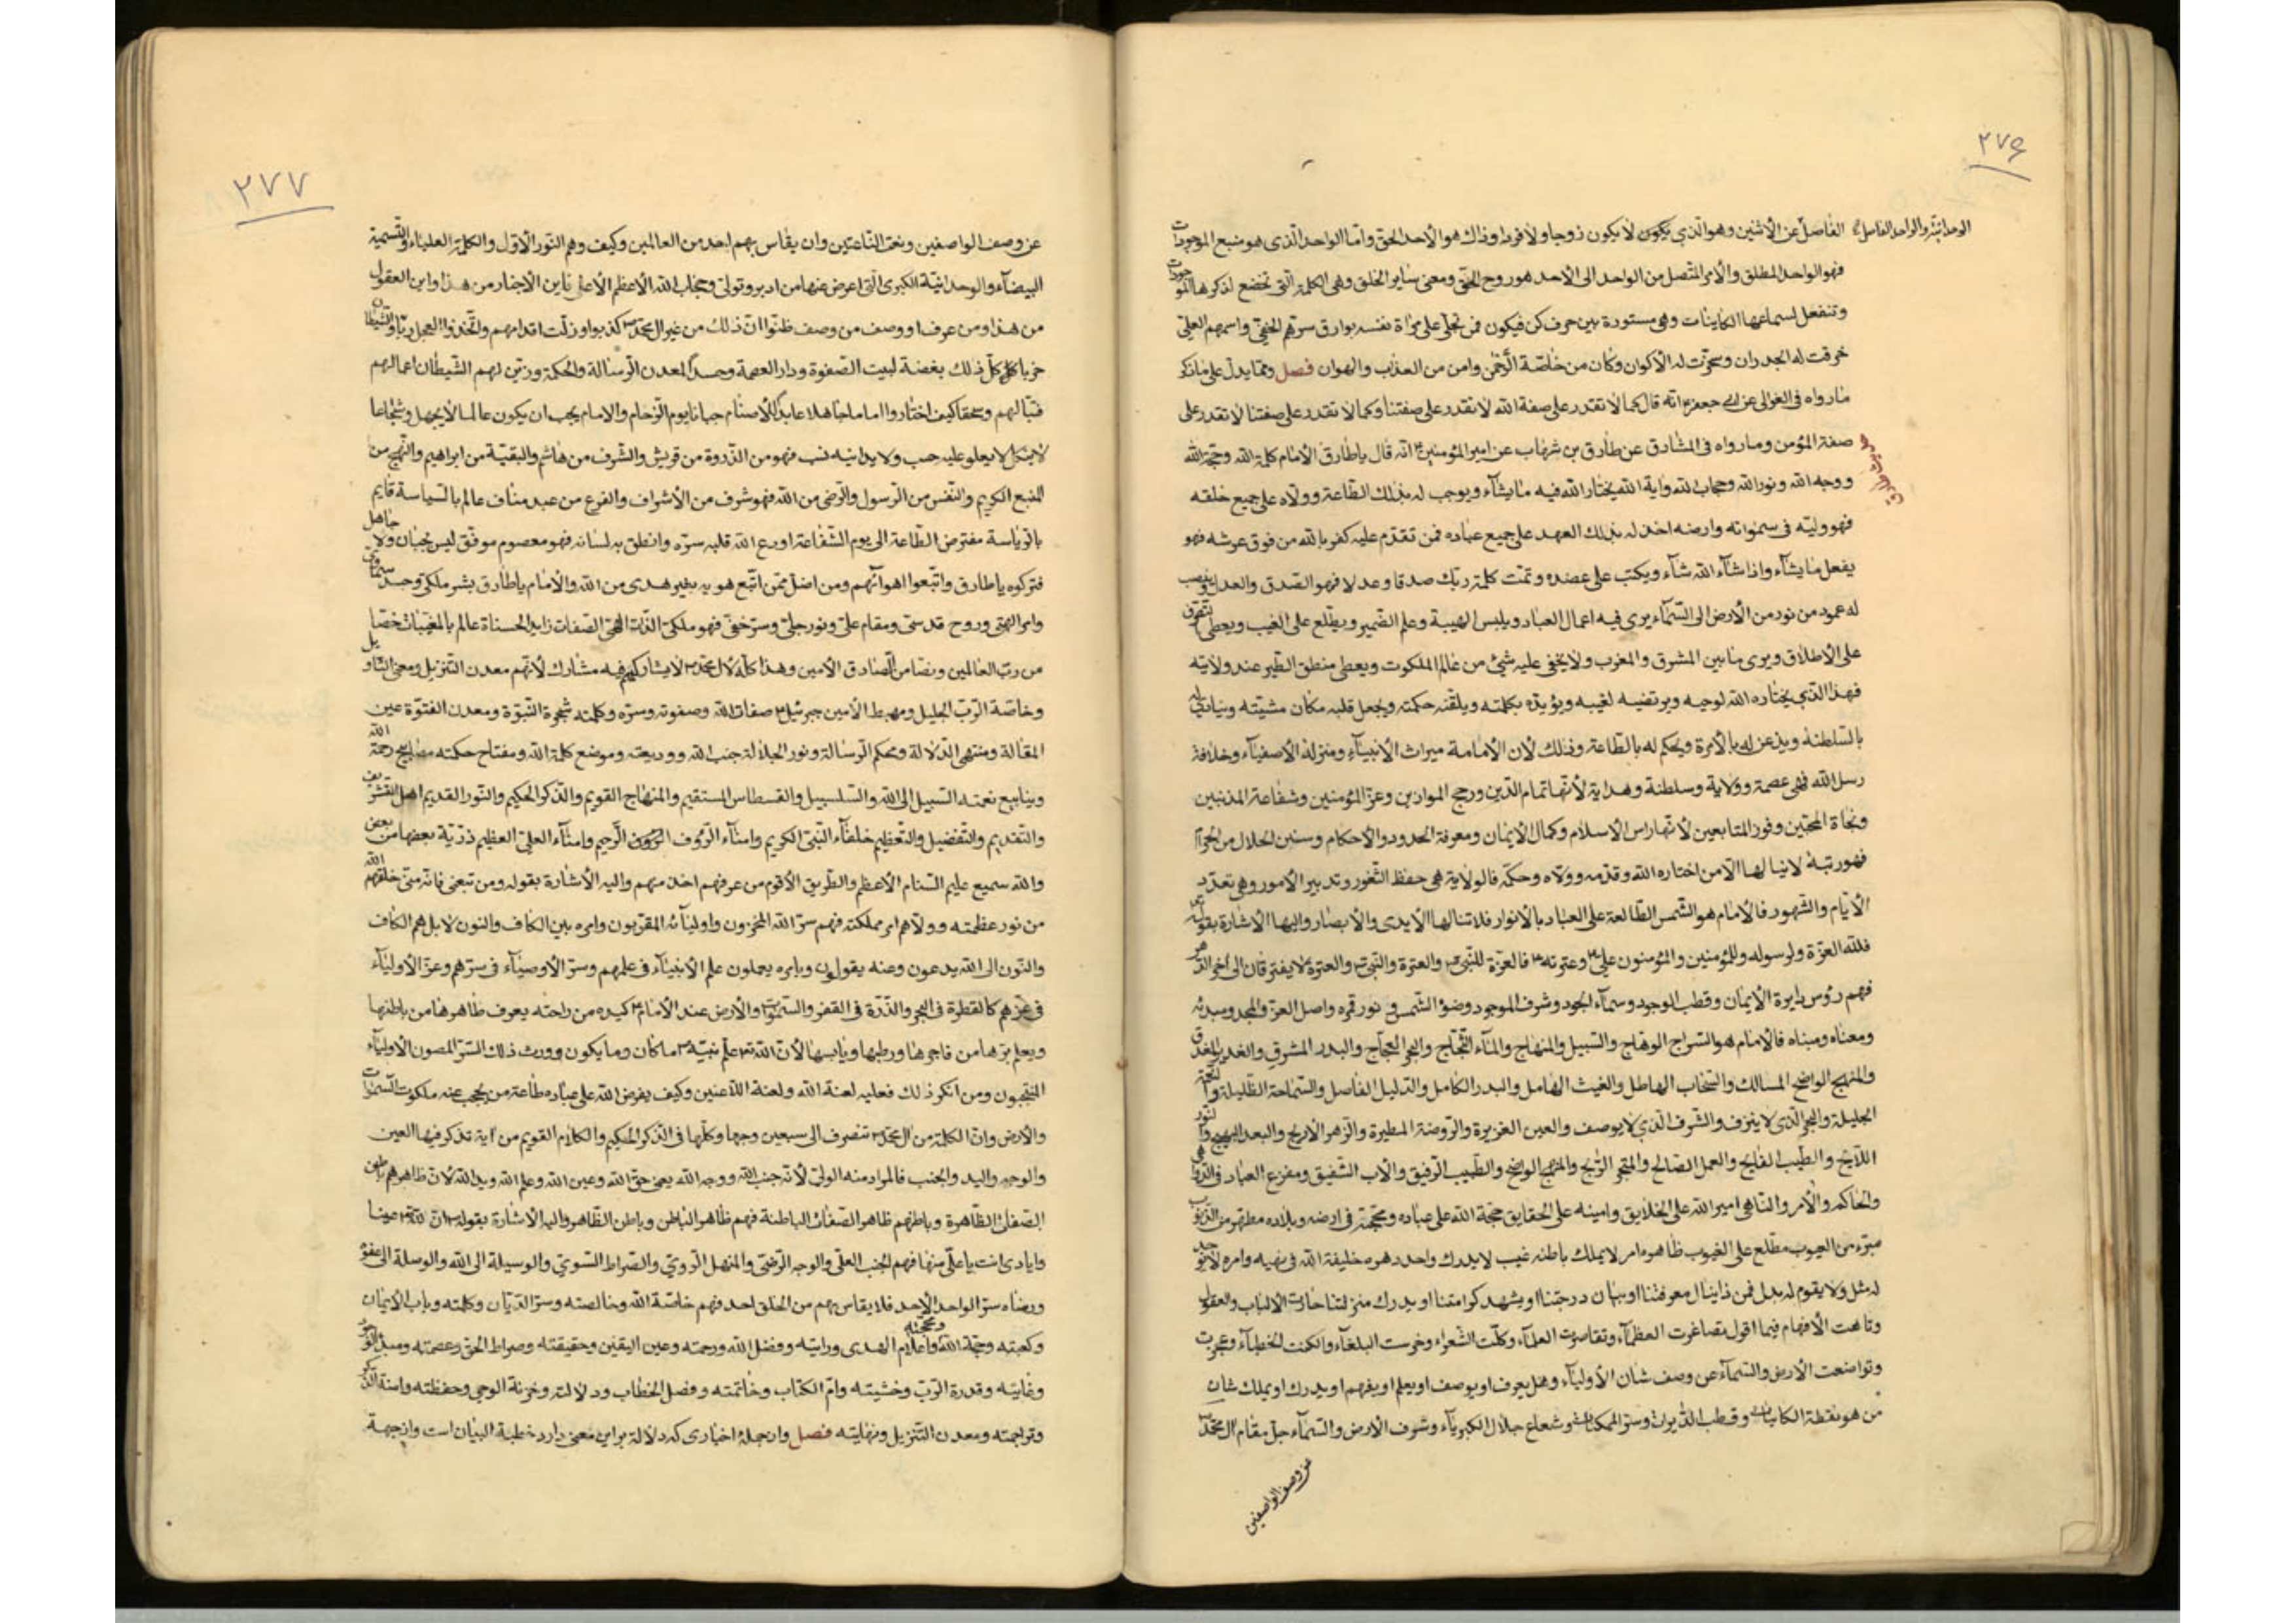 ۲۷۶
الوحدانیّة والواحد الفاصل الفاصل عن الاثنین وهو الّذی یکون لا یکون زوجا ولا فردا وذاک هو الأحد الحق وامّا الواحد الّذی هو منبع الموجودات
فهو الواحد المطلق والامر المتّصل من الواحد الی الاحد هو روح الحقّ ومعنی سایر الخلق وهی الکلمة الّتی تخضع لذکرها الموجودات
وتنفعل لسماعها الکاینات وهی مستورة بین حرف کن فیکون فمن تجلّی علی مرآة نفسه بوارق سرّهم الخفیّ واسمهم العلیّ
خرقت له الجدران وسخّرت له الأکوان وکان من خاصّة الرّحمن وامن من العذاب والهوان فصل وممّا یدلّ علی ما ذکر
ما رواه فی الغوالی عن ابی جعفر ع انّه قال کما لا تقدر علی صفة الله لا تقدر علی صفتنا وکما لا تقدر علی صفتنا لا تقدر علی
صفة المؤمن وما رواه فی المشارق عن طارق بن شهاب عن امیر المؤمنین ع انّه قال یا طارق الأمام کلمة الله وحجّة الله
حدیث طارق
ووجه الله ونور الله وحجاب الله وآیة الله یختار الله فیه ما یشاء ویوجب له بذلک الطّاعة وولاه علی جمیع خلقه
فهو ولیّه فی سمواته وارضه اخذ له بذلک العهد علی جمیع عباده فمن تقدّم علیه کفر بالله من فوق عرشه فهو
یفعل ما یشآء واذا شآء الله شآء ویکتب علی عضده وتمّت کلمة ربّک صدقا وعدلا فهو الصّدق والعدل وینصب
له عمود من نور من الأرض الی السّمآء یری فیه اعمال العباد ویلبس الهیبة وعلم الضّمیر ویطّلع علی الغیب ویعطی التصرّف
علی الاطلاق ویری ما بین المشرق والمغرب ولا یخفی علیه شیء من عالم الملکوت ویعطی منطق الطّیر عند ولایته
فهذا الّذی یختاره الله لوحیه ویرتضیه لغیبه ویؤیّده بکلمته ویلقّنه حکمته ویجعل قلبه مکان مشیّته وینادی له
بالسّلطنة ویذعن له بالأمرة ویحکم له بالطّاعة وذلک لأن الأمامة میراث الأنبیآء ومنزلة الأصفیآء وخلافة
رسل الله فهی عصمة وولایة وسلطنة وهدایة لأنّها تمام الدّین ورجح الموازین وعزّ المؤمنین وشفاعة المذنبین
ونجاة المحبّین وفوز المتابعین لأنّها راس الاسلام وکمال الایمان ومعرفة الحدود والأحکام وسنن الحلال من الحرآم
فهو رتبة لا ینالها الّا من اختاره الله وقدّمه وولاه وحکّمه فالولایة هی حفظ الثّغور وتدبیر الأمور وهی تعدّد
الأیّام والشّهور فالأمام هو الشّمس الطّالعة علی العباد بالأنوار فلا تنالها الأیدی والأبصار والیها الأشارة بقوله تعالی
فلله العزّة ولرسوله وللمؤمنین والمؤمنون علیّ ع وعترته ع فالعزّة للنّبیّ ص والعترة والنّبیّ ص والعترة لا یفترقان الی آخر الدّهر
فهم رؤس دایرة الأیمان وقطب الوجود وسمآء الجود وشرف الموجود وضوء الشّمس ونور قمره واصل العزّ والمجد ومبدئه
ومعناه ومبناه فالأمام هو السّراج الوهّاج والسّبیل والمنهاج والمآء الثّجّاج والبحر العجّاج والبدر المشرق والغدیر المغدق
والمنهج الواضح المسالک والسّحاب الهاطل والغیث الهامل والبدر الکامل والدّلیل الفاصل والسّماحة الظّلیلة والنّعمة
الجلیلة والبحر الّذی لا ینزف والشّرف الّذی لا یوصف والعین الغزیرة والرّوضة المطیرة والزّهر الأریج والبدر البهیج والنّور
اللّایح والطّیب الفایح والعمل الصّالح والمتجر الرّبح والمنهج الواضح والطّبیب الرّفیق والأب الشّفیق ومفزع العباد فی الدّواهی
والحاکم والآمر والنّاهی امیر الله علی الخلایق وامینه علی الحقایق حجّة الله علی عباده ومحجّته فی ارضه وبلاده مطهّر من الذّنوب
مبرّء من العیوب مطّلع علی الغیوب ظاهره امر لا یملک باطنه غیب لا یدرک واحد دهره خلیفة الله فی نهیه وامره لا یوجد
له مثل ولا یقوم له بدل فمن ذا ینال معرفتنا او ینال درجتنا او یشهد کرامتنا او یدرک منزلتنا حارت الألباب والعقول
وتاهت الأفهام فیما اقول تصاغرت العظمآء وتقاصرت العلمآء وکلّت الشّعراء وخرست البلغآء والکنت الخطبآء وعجزت
وتواضعت الأرض والسّمآء عن وصف شان الأولیآء وهل یعرف او یوصف او یعلم او یفهم او یدرک او یملک شان
من هو نقطة الکاینات وقطب الدّایرات وسرّ الممکنات وشعاع جلال الکبریآء وشرف الأرض والسّمآء جلّ مقام آل محمّد ص
عن وصف الواصفین
۲۷۷
عن وصف الواصفین ونعت النّاعتین وان یقاس بهم احد من العالمین وکیف وهم النّور الأوّل والکلمة العلیاء والتّسمیة
البیضآء والوحدانیّة الکبری الّتی اعرض عنها من ادبر وتولّی وحجاب الله الأعظم الأعلی فاین الأختیار من هذا واین العقول
من هذا ومن عرف او وصف من وصف ظنّوا انّ ذلک من غیر آل محمّد ص کذبوا وزلّت اقدامهم واتّخذوا العجل ربّا والشّیطان
حزبا کلّ ذلک بغضة لبیت الصّفوة ودار العصمة وحسداً لمعدن الرّسالة والحکمة وزیّن لهم الشّیطان اعمالهم
فتبّا لهم وسحقا کیف اختاروا اماما جاهلا عابداً للأصنام جبانا یوم الزّحام والامام یجب ان یکون عالما لا یجهل وشجاعا
لا ینکل لا یعلو علیه حسب ولا یدانیه نسب فهو من الذّروة من قریش والشّرف من هاشم والبقیّة من ابراهیم والنّهج من
المنبع الکریم والنّفس من الرّسول والرّضی من الله فهو شرف من الأشراف والفرع من عبد مناف عالم بالسّیاسة قایم
بالرّیاسة مفترض الطّاعة الی یوم الشّفاعة اودع الله قلبه سرّه وانطق به لسانه فهو معصوم موفّق لیس بجبان ولا جاهل
فترکوه یا طارق واتّبعوا اهوآئهم ومن اضلّ ممّن اتّبع هویه بغیر هدی من الله والأمام یا طارق بشر ملکیّ وجسد سماویّ
وامر الهیّ وروح قدسیّ ومقام علیّ ونور جلیّ وسرّ خفیّ فهو ملکیّ الذّات الهیّ الصّفات زاید الحسنات عالم بالمغیّبات خصّا
من ربّ العالمین ونصّا من الصّادق الأمین وهذا کلّه لآل محمّد ص لا یشارکهم فیه مشارک لأنّهم معدن التّنزیل ومعنی التّاویل
وخاصّة الرّبّ الجلیل ومهبط الأمین جبرئیل ع صفات الله وصفوته وسرّه وکلمته شجرة النّبوّة ومعدن الفتوّة عین
المقالة ومنتهی الدّلالة ومحکم الرّسالة ونور الجلالة جنب الله وودیعته وموضع کلمة الله ومفتاح حکمته مصابیح رحمة الله
وینابیع نعمته السّبیل الی الله والسّلسبیل والقسطاس المستقیم والمنهاج القویم والذّکر الحکیم والنّور القدیم اهل التّشریف
والتّقدیم والتّفضیل والتّعظیم خلفآء النّبیّ الکریم وامنآء الرّؤف الرّحیم وامنآء العلیّ العظیم ذرّیّة بعضها من بعض
والله سمیع علیم السّنام الأعظم والطّریق الأقوم من عرفهم اخذ منهم والیه الأشارة بقوله ومن تبعنی فانّه منّی خلقهم الله
من نور عظمته وولّاهم امر مملکته فهم سرّ الله المخزون واولیآئه المقرّبون وامره بین الکاف والنون لا بل هم الکاف
والنّون الی الله یدعون وعنه یقولون وبامره یعملون علم الأنبیآء فی علمهم وسرّ الأوصیآء فی سرّهم وعزّ الأولیآء
فی عزّهم کالقطرة فی البحر والذّرّة فی القفر والسّموات والأرض عند الأمام ع کیده من راحته یعرف ظاهرها من باطنها
ویعلم برّها من فاجرها ورطبها ویابسها لأنّ الله علّم نبیّه ص ما کان وما یکون وورث ذلک السّرّ المصون الأولیآء
المنتجبون ومن انکر ذلک فعلیه لعنة الله ولعنة اللّاعنین وکیف یفرض الله علی عباده طاعة من یحجب عنه ملکوت السّموات
والأرض وانّ الکلمة من آل محمّد ص تنصرف الی سبعین وجها وکلّها فی الذّکر الحکیم والکلام القویم من آیة تذکر فیها العین
والوجه والید والجنب فالمراد منه الولیّ لأنّه جنب الله ووجه الله یعنی حقّ الله وعین الله وعلم الله وید الله لأنّ ظاهرهم باطن
الصّفات الظّاهرة وباطنهم ظاهر الصّفات الباطنة فهم ظاهر الباطن وباطن الظّاهر والیه الأشارة بقوله ص انّ لله عینا
وایادی انت یا علیّ منها فهم الجنب العلیّ والوجه الرّضیّ والمنهل الرّویّ والصّراط السّویّ والوسیلة الی الله والوصلة الی عفوه
ورضاه سرّ الواحد الأحد فلا یقاس بهم من الخلق احد فهم خاصّة الله وخالصته وسرّ الدّیّان وکلمته وباب الأیمان
وکعبته وحجّة الله ومحجّته واعلام الهدی ورایته وفضل الله ورحمته وعین الیقین وحقیقته وصراط الحقّ وعصمته ومبدء الوجود
وغایته وقدرة الرّبّ وخشیته وامّ الکتاب وخاتمته وفصل الخطاب ودلالته وخزنة الوحی وحفظته وامنة الذّکر
وتراجمته ومعدن التّنزیل ونهایته فصل واز جملۀ اخباری که دلالة بر این معنی دارد خطبة البیان است واز جهة